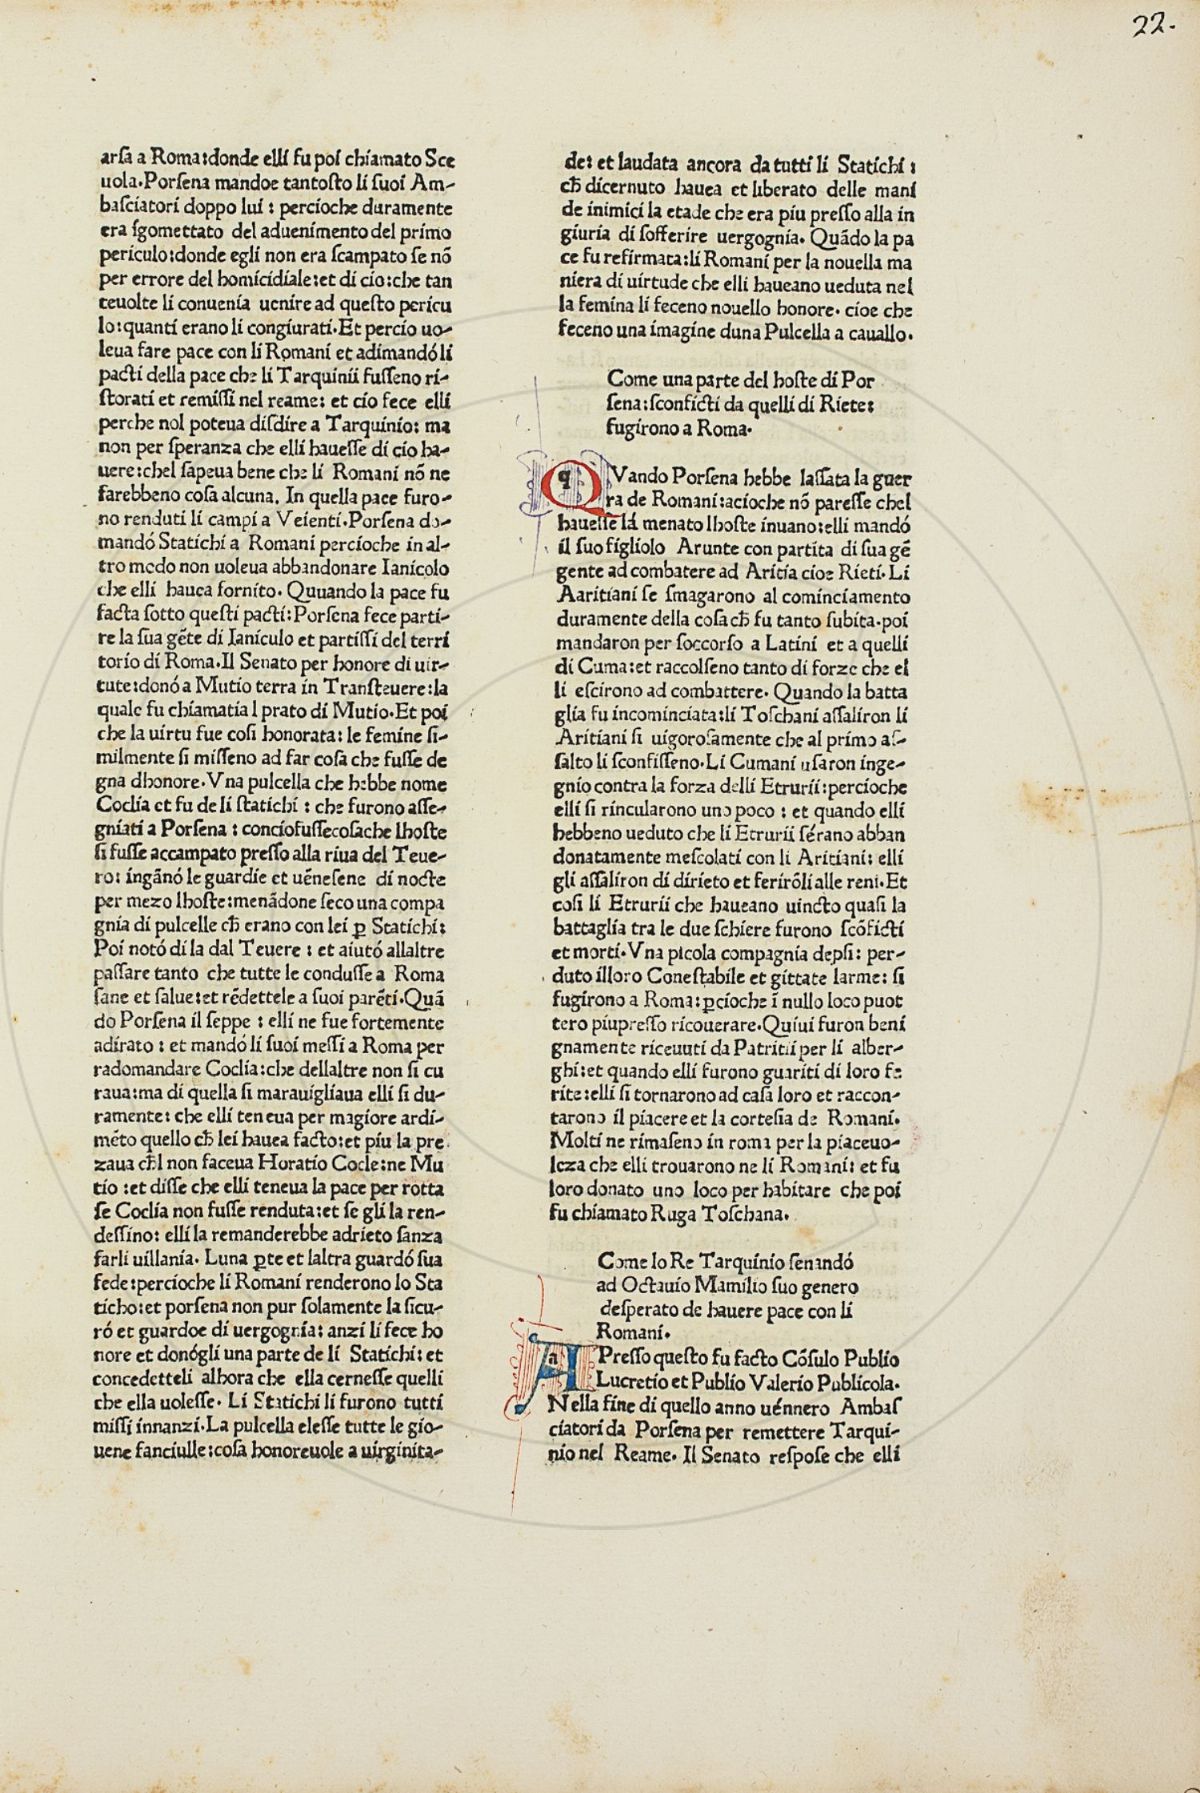 22.
arſa a Roma:donde elli fu poi chiamato Sce
uola.Porſena mandoe tantoſto li ſuoi Am-
baſciatori doppo lui : percioche duramente
era ſgomettato del aduenimento del primo
periculo:donde egli non era ſcampato ſe nõ
per errore del homicidiale:et di cio:che tan
teuolte li conuenia uenire ad queſto pericu
lo:quanti erano li congiurati.Et percio uo-
leua fare pace con li Romani et adimandó li
pacti della pace che li Tarquinii fuſſeno ri-
ſtorati et remiſſi nel reame: et cio fece elli
perche nol poteua diſdire a Tarquinio: ma
non per ſperanza che elli haueſſe di cio ha-
uere:chel ſapeua bene che li Romani nõ ne
farebbeno coſa alcuna. In quella pace furo-
no renduti li campi a Veienti.Porſena do-
mandó Statichi a Romani percioche in al-
tro modo non uoleua abbandonare Ianicolo
che elli hauea fornito. Quuando la pace fu
facta ſotto queſti pacti:Porſena fece parti-
re la ſua gẽte di Ianiculo et partiſſi del terri
torio di Roma.Il Senato per honore di uir-
tute:donó a Mutio terra in Tranſteuere:la
quale fu chiamatia l prato di Mutio.Et poi
che la uirtu fue coſi honorata: le femine ſi-
milmente ſi miſſeno ad far coſa che fuſſe de
gna dhonore.Vna pulcella che hebbe nome
Coclia et fu de li ſtatichi : che furono aſſe-
gniati a Porſena : conciofuſſecoſache lhoſte
ſi fuſſe accampato preſſo alla riua del Teue-
ro: ingãnó le guardie et uẽneſene di nocte
per mezo lhoſte:menãdone ſeco una compa
gnia di pulcelle cħ erano con lei ꝑ Statichi:
Poi notó di la dal Teuere : et aiutó allaltre
paſſare tanto che tutte le conduſſe a Roma
ſane et ſalue:et rẽdettele a ſuoi parẽti.Quã
do Porſena il ſeppe : elli ne fue fortemente
adirato : et mandó li ſuoi meſſi a Roma per
radomandare Coclia:che dellaltre non ſi cu
raua:ma di quella ſi marauigliaua elli ſi du-
ramente: che elli teneua per magiore ardi-
mẽto quello cħ lei hauea facto:et piu la pre
zaua cħl non faceua Horatio Cocle:ne Mu
tio :et diſſe che elli teneua la pace per rotta
ſe Coclia non fuſſe renduta:et ſe gli la ren-
deſſino: elli la remanderebbe adrieto ſanza
farli uillania. Luna ꝑte et laltra guardó ſua
fede:percioche li Romani renderono lo Sta
ticho:et porſena non pur ſolamente la ſicu-
ró et guardoe di uergognia: anzi li fece ho
nore et donógli una parte de li Statichi: et
concedetteli alhora che ella cerneſſe quelli
che ella uoleſſe. Li Statichi li furono tutti
miſſi innanzi.La pulcella eleſſe tutte le gio-
uene fanciulle:coſa honoreuole a uirginita-
de: et laudata ancora da tutti li Statichi :
cħ dicernuto hauea et liberato delle mani
de inimici la etade che era piu preſſo alla in
giuria di ſofferire uergognia. Quãdo la pa
ce fu refirmata:li Romani per la nouella ma
niera di uirtude che elli haueano ueduta nel
la femina li feceno nouello honore. cioe che
feceno una imagine duna Pulcella a cauallo.
Come una parte del hoſte di Por
ſena:ſconficti da quelli di Riete:
fugirono a Roma.
Q q Vando Porſena hebbe laſſata la guer
ra de Romani:acioche nõ pareſſe chel
haueſſe lá menato lhoſte inuano:elli mandó
il ſuo figliolo Arunte con partita di ſua gẽ
gente ad combatere ad Aritia cioe Rieti. Li
Aaritiani ſe ſmagarono al cominciamento
duramente della coſa cħ fu tanto ſubita.poi
mandaron per ſoccorſo a Latini et a quelli
di Cuma:et raccolſeno tanto di forze che el
li eſcirono ad combattere. Quando la batta
glia fu incominciata:li Toſchani aſſaliron li
Aritiani ſi uigoroſamente che al primo aſ-
ſalto li ſconfiſſeno.Li Cumani uſaron inge-
gnio contra la forza delli Etrurii:percioche
elli ſi rincularono uno poco : et quando elli
hebbeno ueduto che li Etrurii ſérano abban
donatamente meſcolati con li Aritiani: elli
gli aſſaliron di dirieto et ferirõli alle reni.Et
coſi li Etrurii che haueano uincto quaſi la
battaglia tra le due ſchiere furono ſcõficti
et morti.Vna picola compagnia depſi: per-
duto illoro Coneſtabile et gittate larme: ſi
fugirono a Roma:ꝑcioche ĩ nullo loco puot
tero piupreſſo ricouerare.Quiui furon beni
gnamente riceuuti da Patritii per li alber-
ghi:et quando elli furono guariti di loro fe
rite:elli ſi tornarono ad caſa loro et raccon-
tarono il piacere et la corteſia de Romani.
Molti ne rimaſeno in roma per la piaceuo-
lcza che elli trouarono ne li Romani: et fu
loro donato uno loco per habitare che poi
fu chiamato Ruga Toſchana.
Come lo Re Tarquinio ſenandó
ad Octauio Mamilio ſuo genero
deſperato de hauere pace con li
Romani.
A a Preſſo queſto fu facto Cõſulo Publio
Lucretio et Publio Valerio Publicola.
Nella fine di quello anno uénnero Ambaſ
ciatori da Porſena per remettere Tarqui-
nio nel Reame. Il Senato reſpoſe che elli